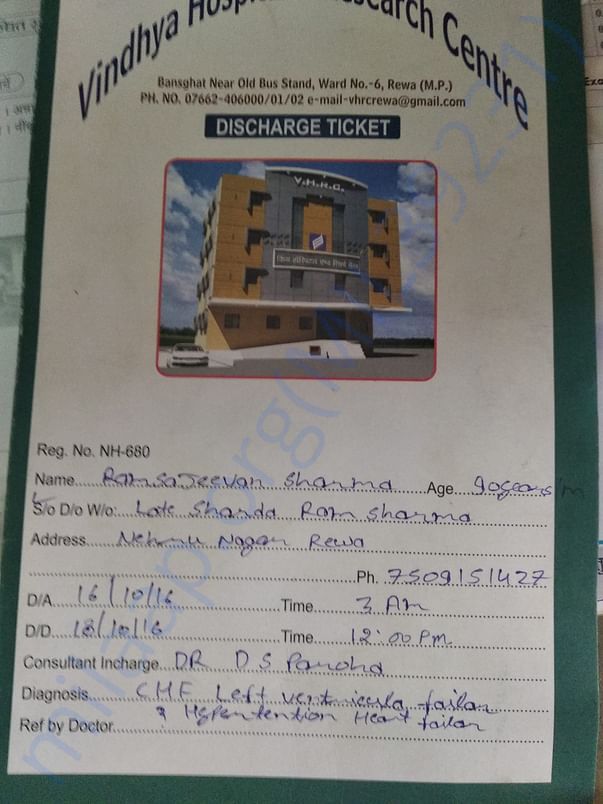 Vindhya Hospital & Research Centre
Bansghat Near Old Bus Stand, Ward No.-6, Rewa (M.P.)
PH. NO. 07662-406000/01/02 e-mail-vhrcrewa@gmail.com
DISCHARGE TICKET
V.H.R.C.
Reg. No. NH-680
Name Ramsajeevan Sharma Age 90 years/m
S/o D/o W/o: Late Sharda Ram Sharma
Address Nehru Nagar Rewa
Ph. 7509151427
D/A 16/10/16 Time 3 Am
D/D 18/10/16 Time 12:00 Pm
Consultant Incharge DR D S Parohd
Diagnosis CHF Left ventricula failar
& Hypertention Heart failar
Ref by Doctor
milaap.org